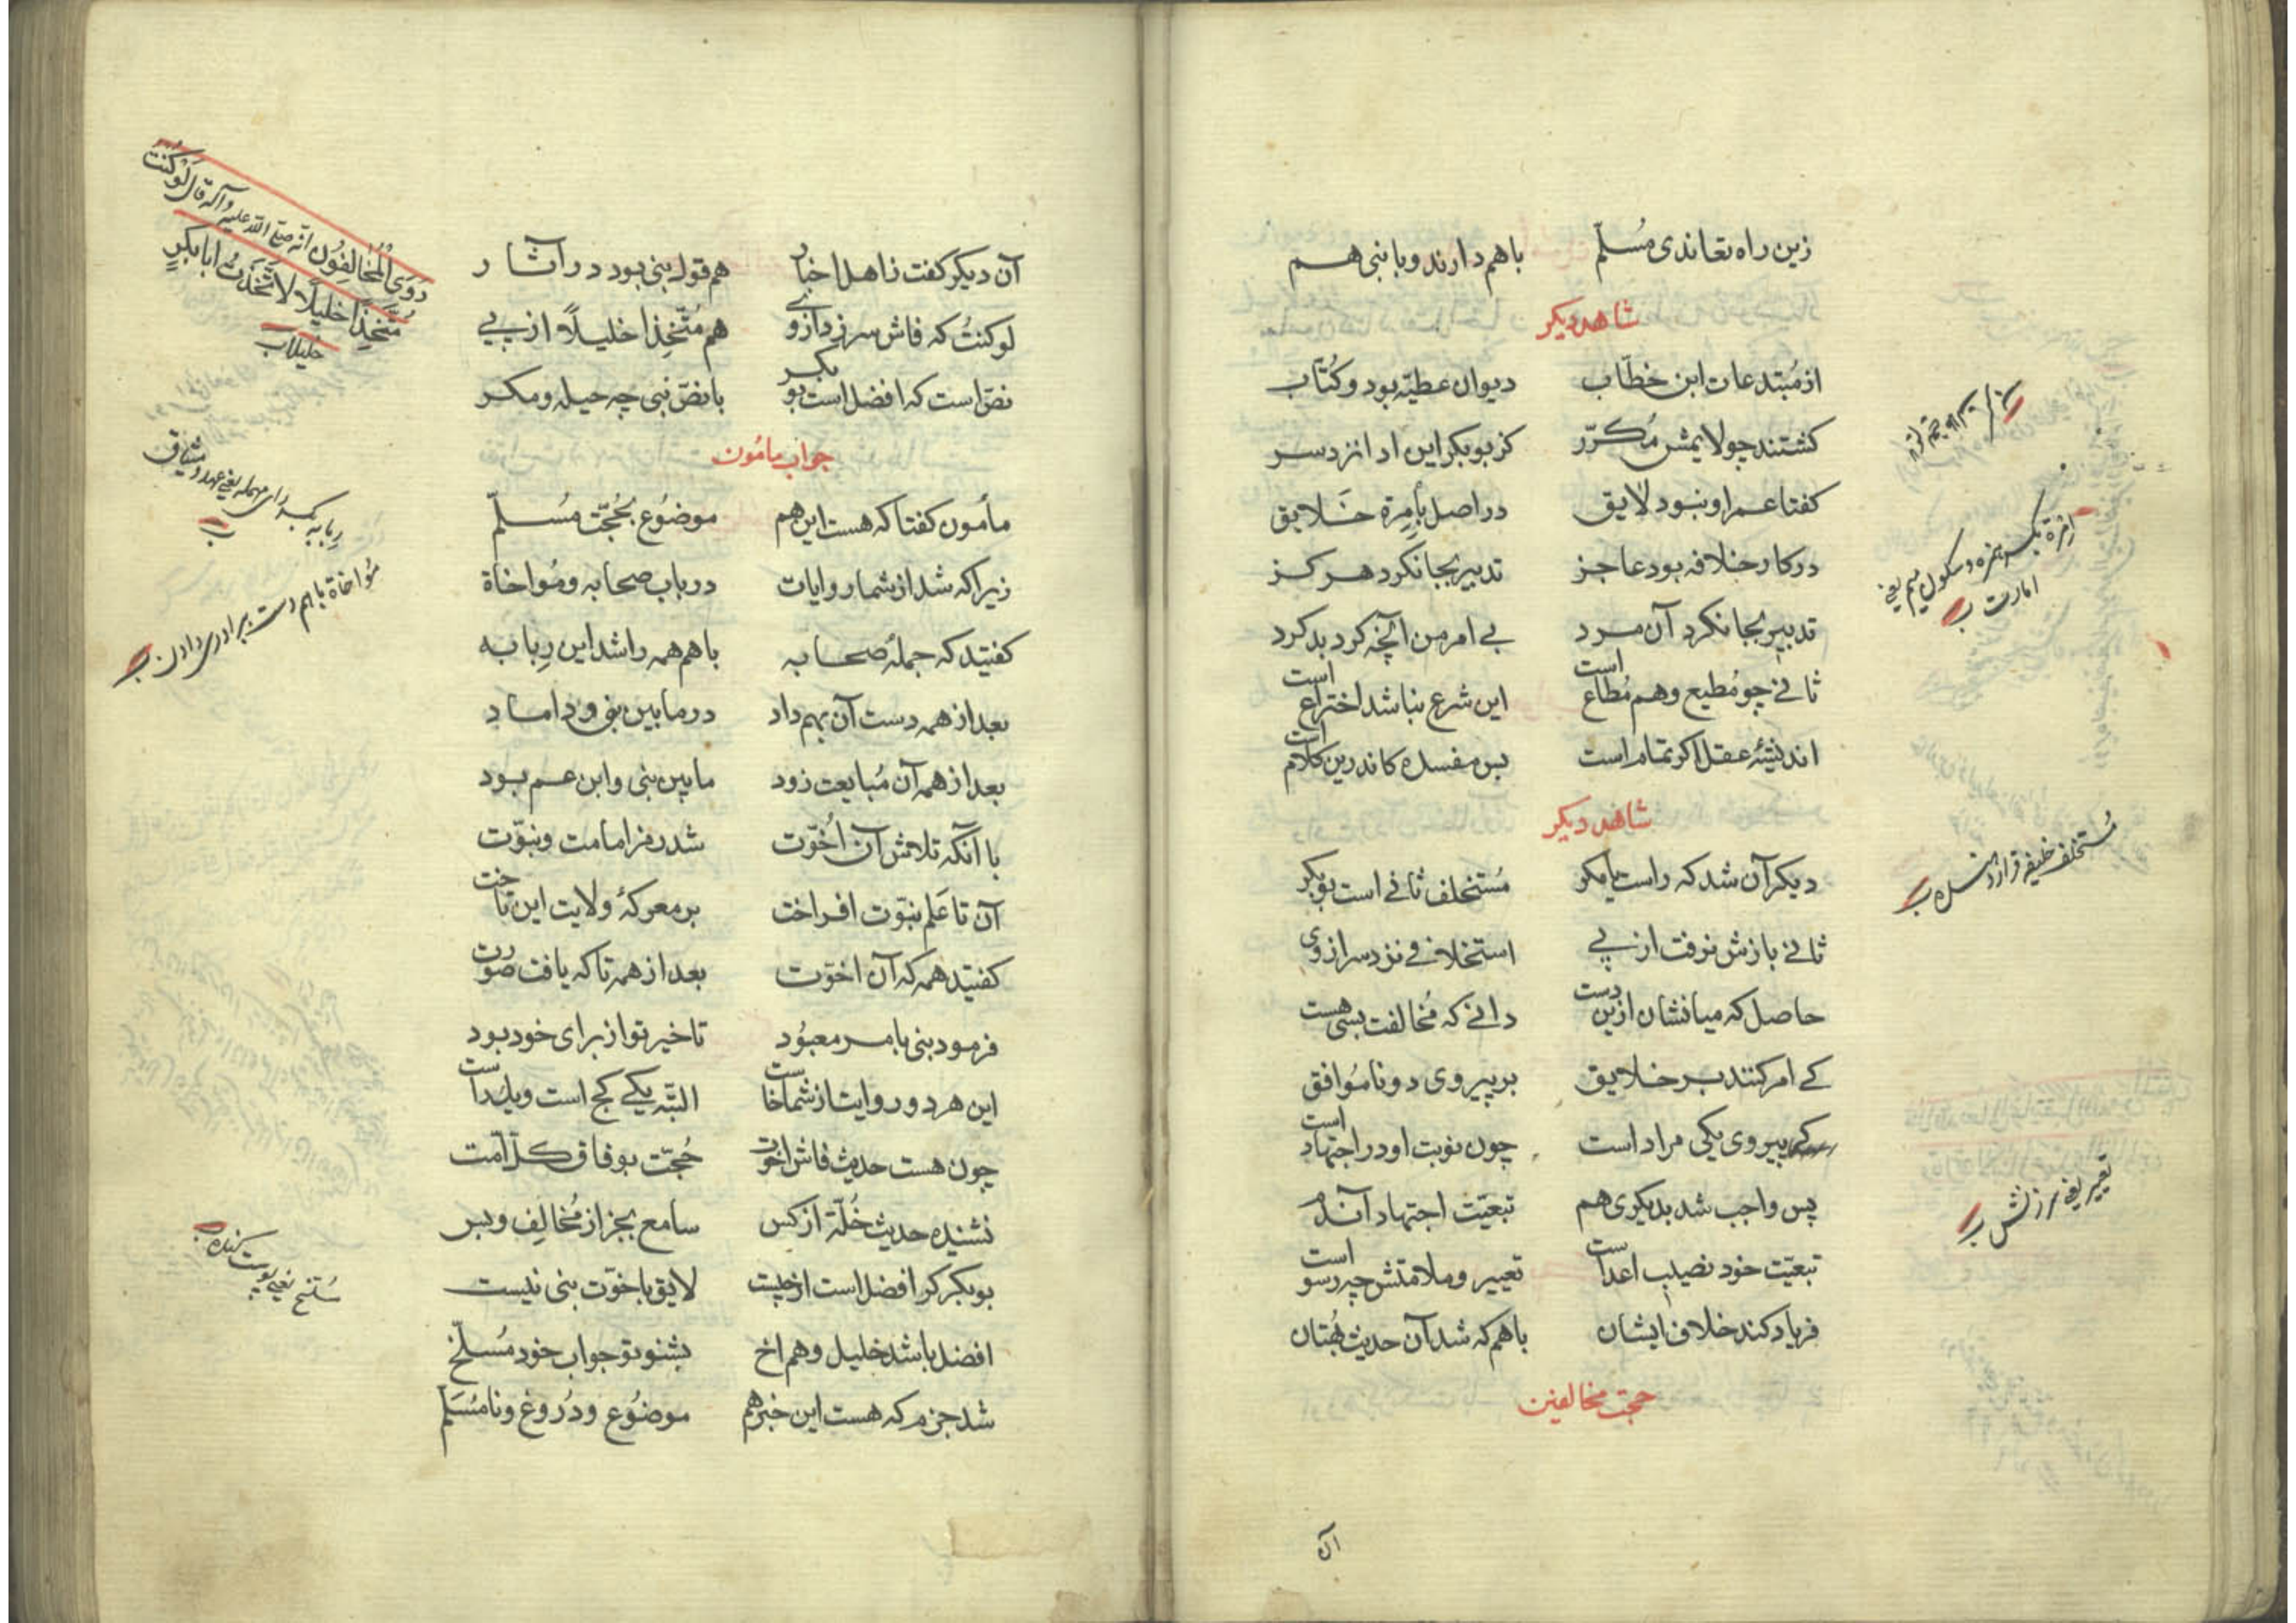 زین راه تعاندی مُسلّم باهم دارند و با نبی هم
شاهد دیکر
از مُبتدعات ابن خطّاب دیوان عطیّه بود و کُتّاب
کشتند چو لایمش مُکرّر کز بوبکر این اد انزد سر
کفتا عمر او نبود لایق در اصل بامِرهٔ خَلایق
در کار خلافه بود عاجز تدبیر بجا نکرد هرکز
تدبیر بجا نکرد آن مرد بی امر من آنچه کرد بد کرد
ثانی چو مُطیع و هم مُطاع است این شرع نباشد اختراع است
اندیشهٔ عقل اکر تمام است بس مفسده کاندرین کلام است
شاهد دیکر
دیکر آن شد که راست یا مکر مُستخلف ثانی است بوبکر
ثانی بازش نرفت از پی استخلافی نزد سر از وی
حاصل که میانشان ازین دست دانی که مُخالفت بسی هست
کی امر کنند بر خلایق بر پیروی دو نامُوافق
که پیروی یکی مراد است چون نوبت او در اجتهاد است
پس واجب شد بدیکری هم تبعیّت اجتهاد آندم
تبعیّت خود نصیب اعداست تعییر و ملامتش چه رسواست
فریاد کند خلاف ایشان باهم که شد آن حدیث بُهتان
حجّت مخالفین
مُستخلف خلیفه قرار داده شده ب
تعییر یعنی سرزنش ب
اِمْرَة بکسر همزه و سکون میم یعنی
امارت ب
آن
آن دیکر کفت زاهل اخبار هم قول نبی بود در آثار
لو کنتُ که فاش سر زد از وی هم مُتّخِذا خلیلاً از پی
نصّ است که افضل است بوبکر با نصّ نبی چه حیله و مکر
جواب مامُون
مأمون کفتا که هست این هم موضُوع بحُجّت مُسلّم
زیرا که شد از شما روایات در باب صحابه و مُواخاة
کفتید که جملهٔ صحابه باهم همه را شد این رِبابه
بعد از همه دست آن بهم داد در مابین نبی و داماد
بعد از همه آن مُبایعت زود مابین نبی و ابن عم بود
با آنکه تلاش آن اُخوّت شد رمز امامت و نبوّت
آن تا عَلم نبوّت افراخت بر معرکهٔ ولایت این تاخت
کفتید همه که آن اخوّت بعد از همه تا که یافت صورت
فرمود نبی بامر معبُود تاخیر تو از برای خود بود
این هر دو روایت از شما خاست البتّه یکی کج است و یک راست
چون هست حدیث فاش اخوّت حُجّت بوفاق کلّ اُمّت
نشنیده حدیث خُلّة از کس سامع بجز از مُخالِف و بس
بوبکر کر افضل است از چیست لایق باخوّت نبی نیست
افضل باشد خلیل و هم اخ بشنو تو جواب خود مُسلّخ
شد جزم که هست این خبر هم موضُوع و دُروغ و نامُسَلّم
رَوَی الْمُخالِفُون انّه صلّی اللّه علیه وآله قال لَوْ کُنْتُ
مُتّخِذًا خلیلًا لَاتَّخَذْتُ ابابکرٍ
خلیلًا ب
رِبابه بکسر رای مهمله یعنی عهد و میثاق
ب
مُواخاة باهم دست برادری دادن ب
مُسلّخ یعنی پوست کنده ب